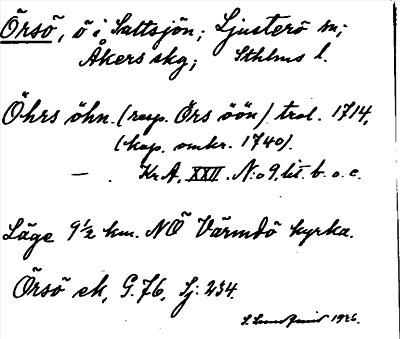 Örsö, ö i Saltsjön; Ljusterö sn;
Åkers skg; Sthlms l.
Öhrs öhn. (resp. Örs öön) trol. 1714,
(kop. omkr. 1740).
— . Kr.A. XXII. N:o 9. lit. b. o. c.
Läge 9½ km. NÖ Värmdö kyrka.
Örsö ek, G. 76, Sj: 234.
1926.